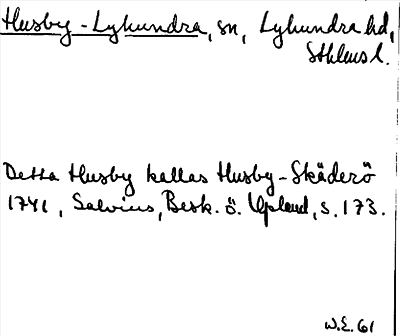 Husby-Lyhundra, sn, Lyhundra hd,
Sthlms l.
Detta Husby kallas Husby-Skäderö
1741, Salvius, Besk. ö. Upland, s. 173.
W.E. 61